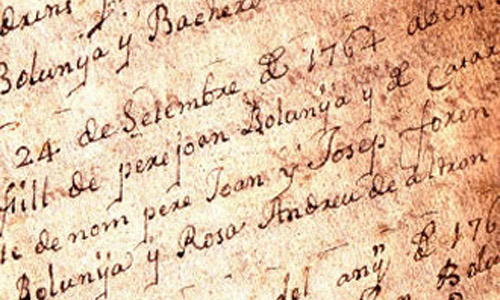 Bolunÿa ÿ Bachere
24 de Setembre de 1764
fill de pere joan Bolunÿa ÿ de Cata
de nom pere Joan ÿ Josep foren
Bolunÿa ÿ Rosa Andreu de
del anÿ de 176
Bolu